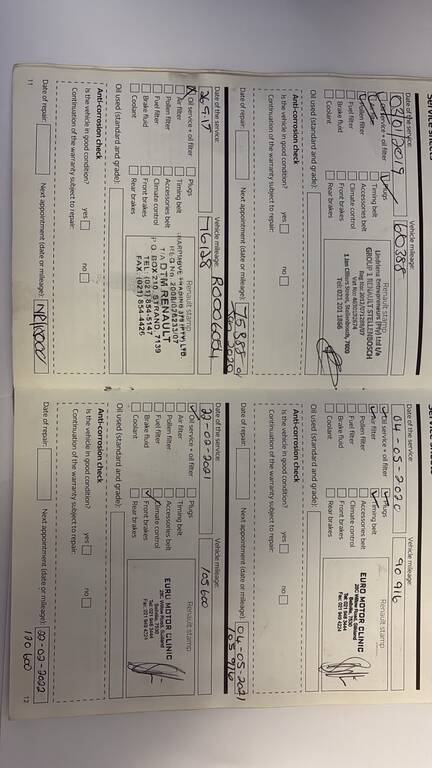 Service sheets
Date of the service:
03/01/2019
Vehicle mileage:
60388
Oil service + oil filter
Plugs
Air filter
Timing belt
Pollen filter
Accessories belt
Fuel filter
Climate control
Brake fluid
Front brakes
Coolant
Rear brakes
Renault stamp
GROUP 1 RENAULT STELLENBOSCH
Oil used (standard and grade):
Anti-corrosion check
Is the vehicle in good condition?
yes
no
Continuation of the warranty subject to repair:
Date of repair:
Next appointment (date or mileage):
Date of the service:
Vehicle mileage:
76128
Oil service + oil filter
Plugs
Air filter
Timing belt
Pollen filter
Accessories belt
Fuel filter
Climate control
Brake fluid
Front brakes
Coolant
Rear brakes
Renault stamp
T/A DTM RENAULT
P O BOX 210 STRAND 7139
TEL: (021) 854-5147
FAX: (021) 854-4426
Oil used (standard and grade):
Anti-corrosion check
Is the vehicle in good condition?
yes
no
Continuation of the warranty subject to repair:
Date of repair:
Next appointment (date or mileage):
11
Service sheets
Date of the service:
04-05-2020
Vehicle mileage:
90 916
Oil service + oil filter
Plugs
Air filter
Timing belt
Pollen filter
Accessories belt
Fuel filter
Climate control
Brake fluid
Front brakes
Coolant
Rear brakes
Renault stamp
EURO MOTOR CLINIC
Oil used (standard and grade):
Anti-corrosion check
Is the vehicle in good condition?
yes
no
Continuation of the warranty subject to repair:
Date of repair:
Next appointment (date or mileage):
04-05-2021
105 916
Date of the service:
22-02-2021
Vehicle mileage:
105600
Oil service + oil filter
Plugs
Air filter
Timing belt
Pollen filter
Accessories belt
Fuel filter
Climate control
Brake fluid
Front brakes
Coolant
Rear brakes
Renault stamp
EURO MOTOR CLINIC
Oil used (standard and grade):
Anti-corrosion check
Is the vehicle in good condition?
yes
no
Continuation of the warranty subject to repair:
Date of repair:
Next appointment (date or mileage):
22-02-2022
120 600
12